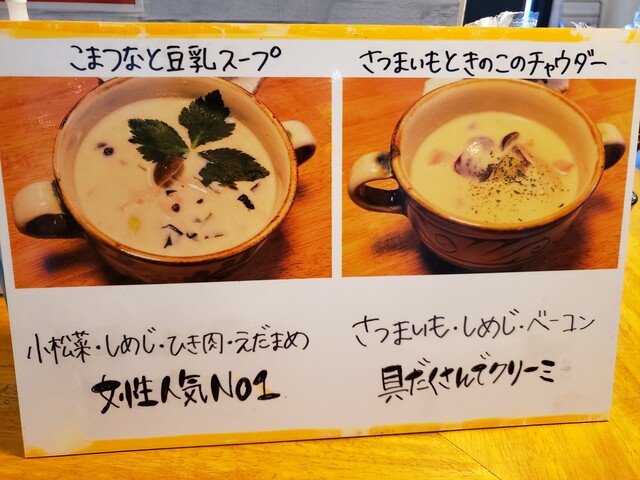 こまつなと豆乳スープ
小松菜・しめじ・ひき肉・えだまめ
女性人気No1
さつまいもときのこのチャウダー
さつまいも・しめじ・ベーコン
具だくさんでクリーミ